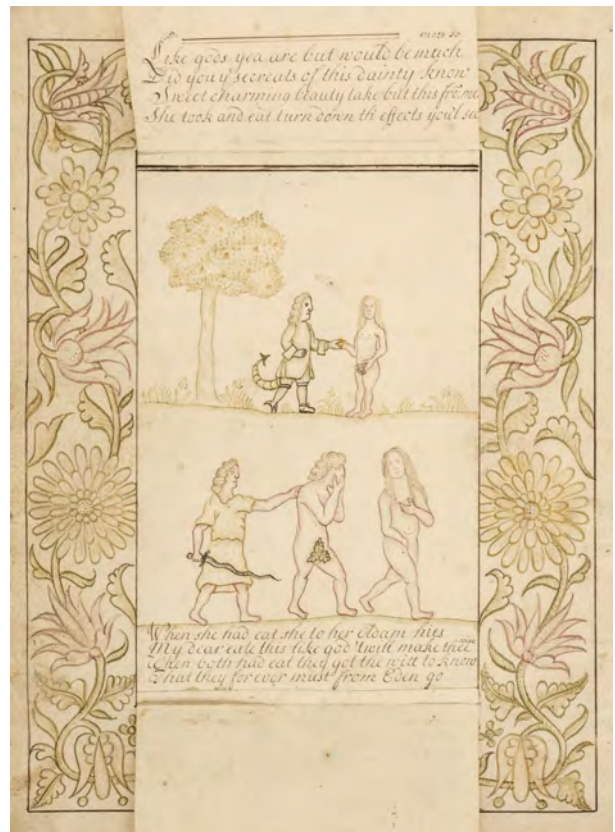 more so
Like gods yea are but would be much
Did you yͤ secreats of this dainty know
Sweet charming beauty take but this from me
She took and eat turn down th effects you'l see
When she had eat she to her Adam hies
My dear eate this like god 'twill make thee
When both had eat they got the witt to know
That they for ever must from Eden go